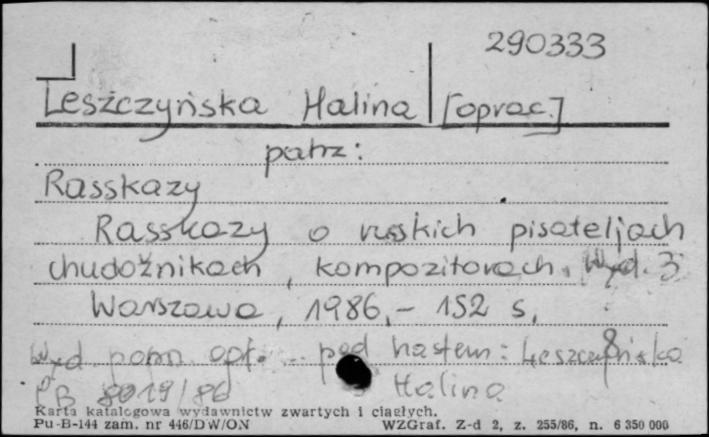 290333
Leszczyńska Halina [oprac.]
patrz:
Rasskazy
Rasskazy o russkich pisateljach
chudožnikach, kompozitorach. Wyd. 3
Warszawa, 1986, - 152 s,
Wyd. pod hasłem: Leszczyńska
PB 8019/86 Halina
Karta katalogowa wydawnictw zwartych i ciągłych.
Pu-B-144 zam. nr 446/DW/ON WZGraf. Z-d 2, z. 255/86, n. 6 350 000